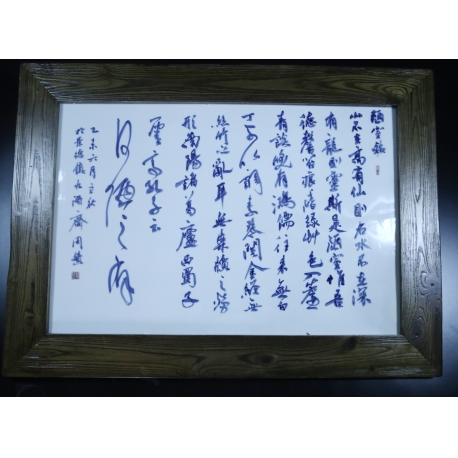 陋室銘
山不在高有仙則名水不在深
有龍則靈斯是陋室惟吾
德馨苔痕階綠草色入簾
青談笑有鴻儒往来無白
丁可以調素琴閱金經無
絲竹之亂耳無案牘之勞
形南陽諸葛廬西蜀子
雲亭孔子云
何陋之有
乙未六月
於景德鎮